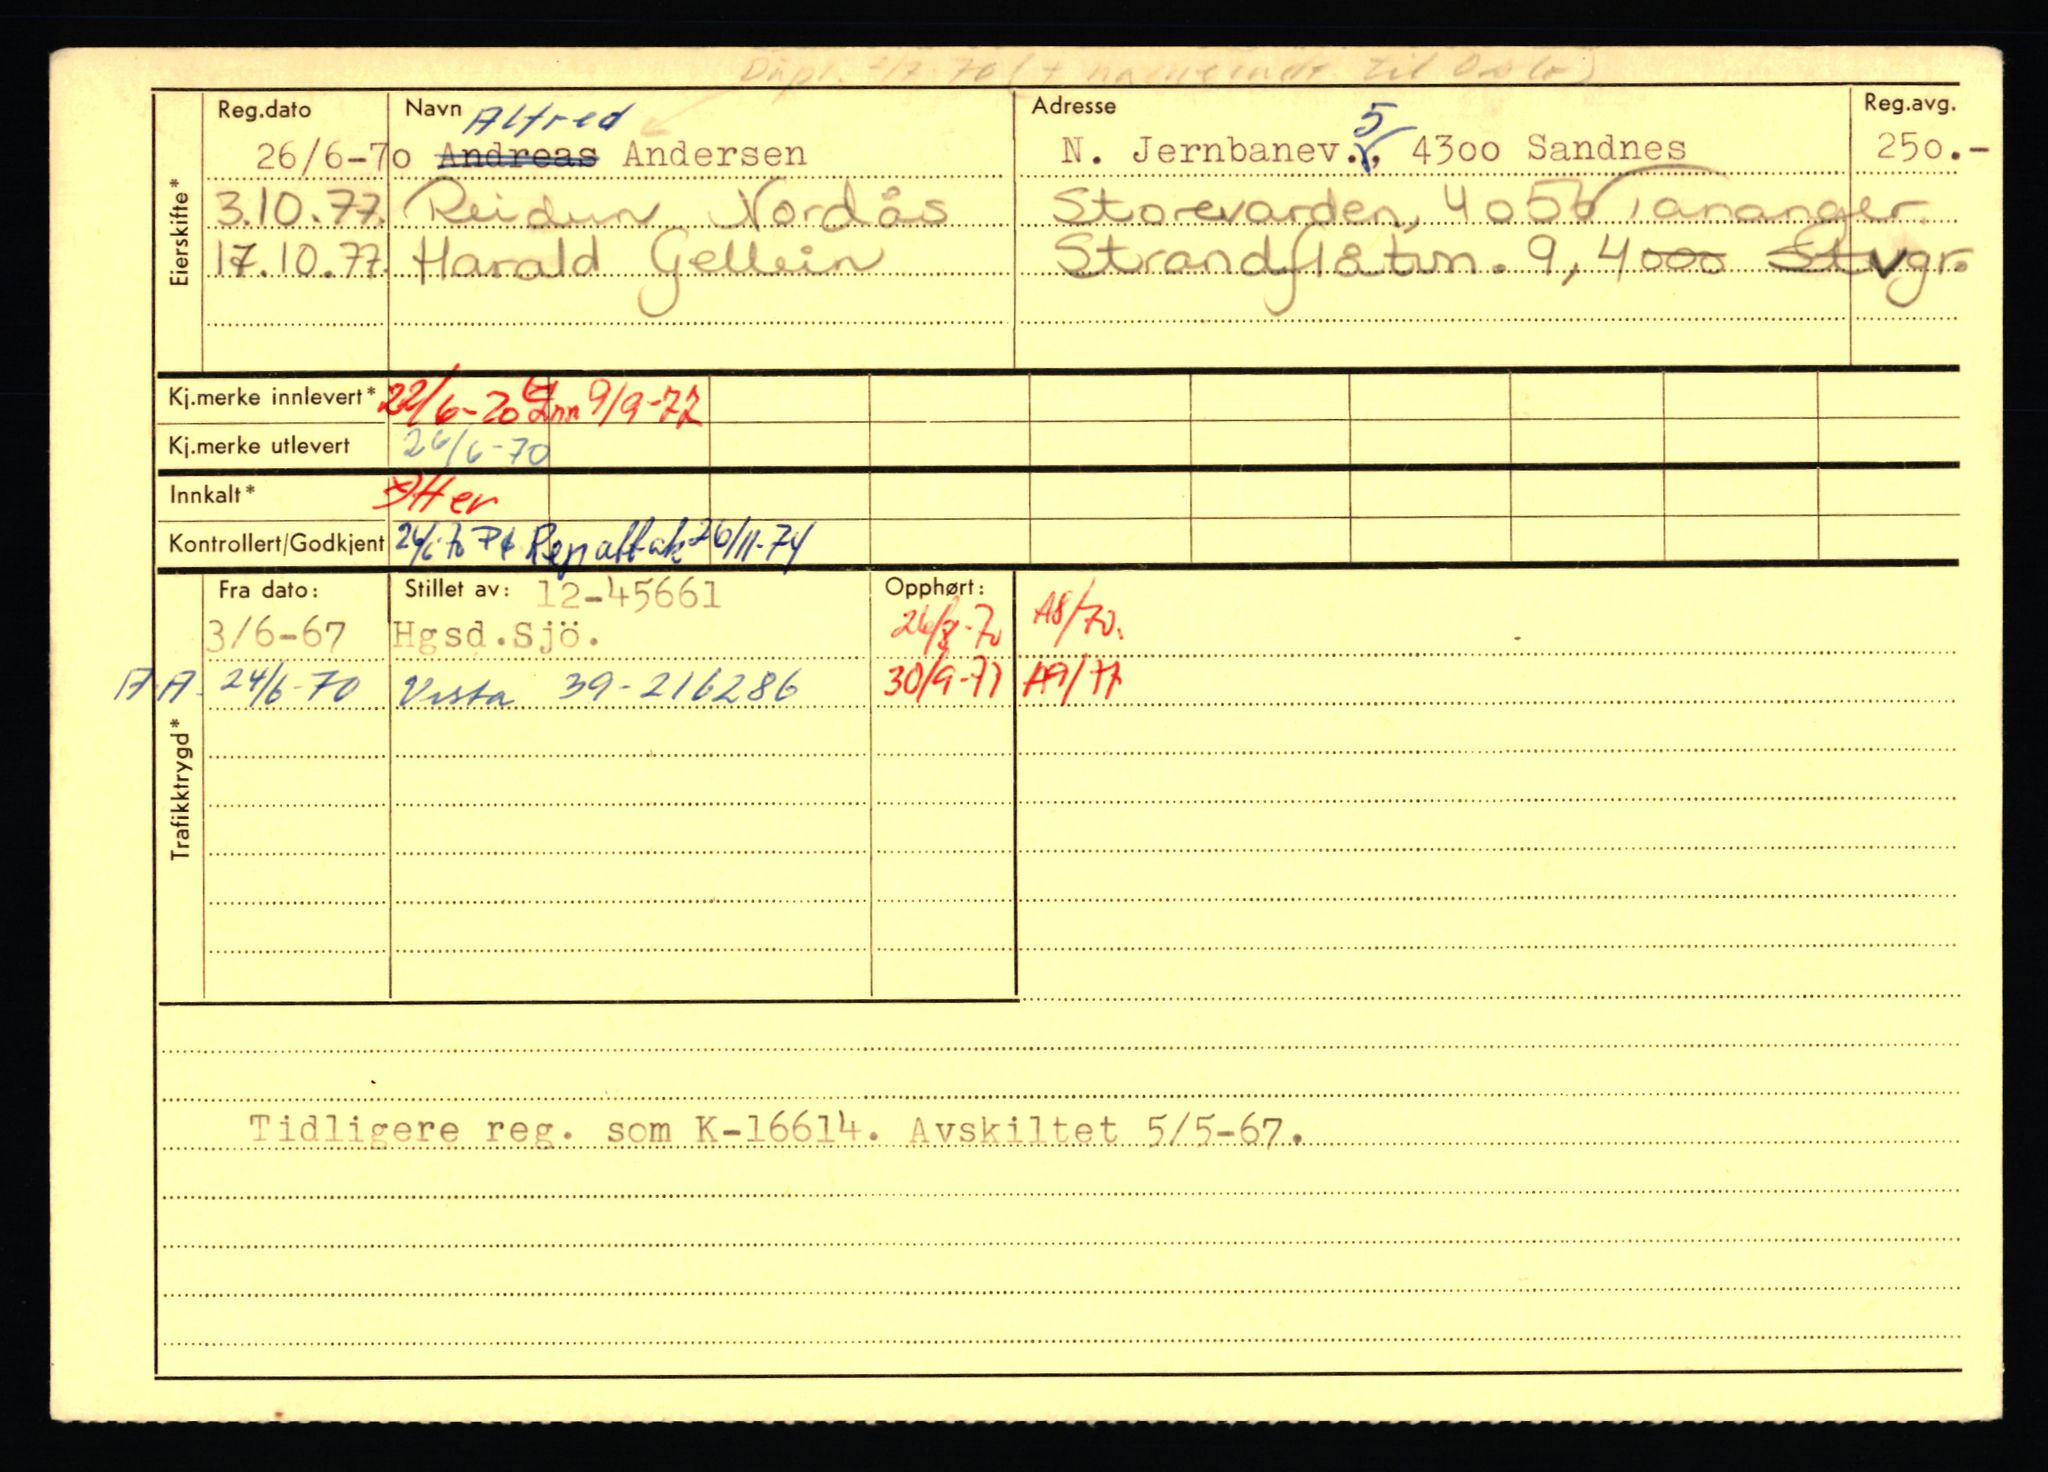 Dupl. 2/7-70 (+ til Oslo)
Reg.dato Navn Adresse Reg.avg.
Alfred 5
26/6-70 Andreas Andersen N. Jernbanev. , 4300 Sandnes 250.-
3.10.77. Reidun Nordås Storevarden, 4056 Tananger
17.10.77. Harald Gellein Strandflåtvn. 9, 4000 Stvgr.
Eierskifte*
Kj.merke innlevert* 22/6-70 Inn 9/9-77
Kj.merke utlevert 26/6-70
Innkalt* Etter
Kontrollert/Godkjent 24/6-70 26/11-74
Fra dato: Stillet av: 12-45661 Opphørt:
3/6-67 Hgsd.Sjö. 26/8-70 A8/70.
A.A. 24/6-70 Vesta 39-216286 30/9-77 A9/77
Trafikktrygd*
Tidligere reg. som K-16614. Avskiltet 5/5-67.